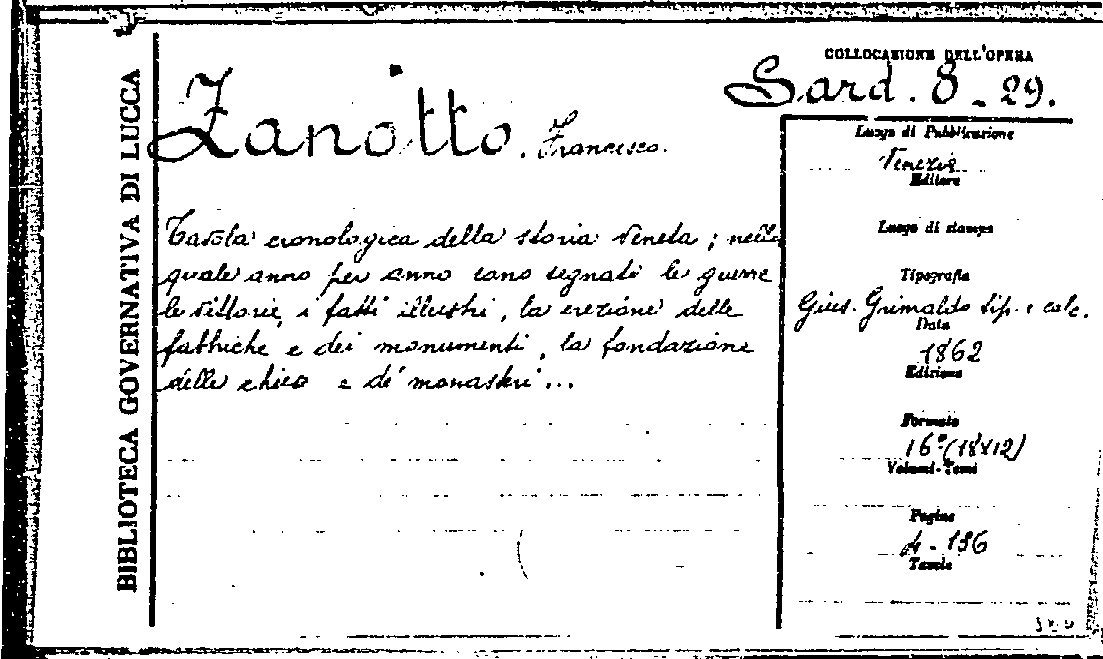 BIBLIOTECA GOVERNATIVA DI LUCCA
COLLOCAZIONE DELL'OPERA
Sard. 8 - 29.
Zanotto, Francesco.
Tavola cronologica della storia Veneta; nella
quale anno per anno sono segnati le guerre
le vittorie, i fatti illustri, la erezione delle
fabbriche e dei monumenti, la fondazione
delle chiese e di monasteri...
Luogo di Pubblicazione
Venezia
Editore
Luogo di stampa
Tipografia
Gius. Grimaldo tip. e calc.
Data
1862
Edizione
Formato
16° (18x12)
Volumi-Tomi
Pagine
4 - 136
Tavole